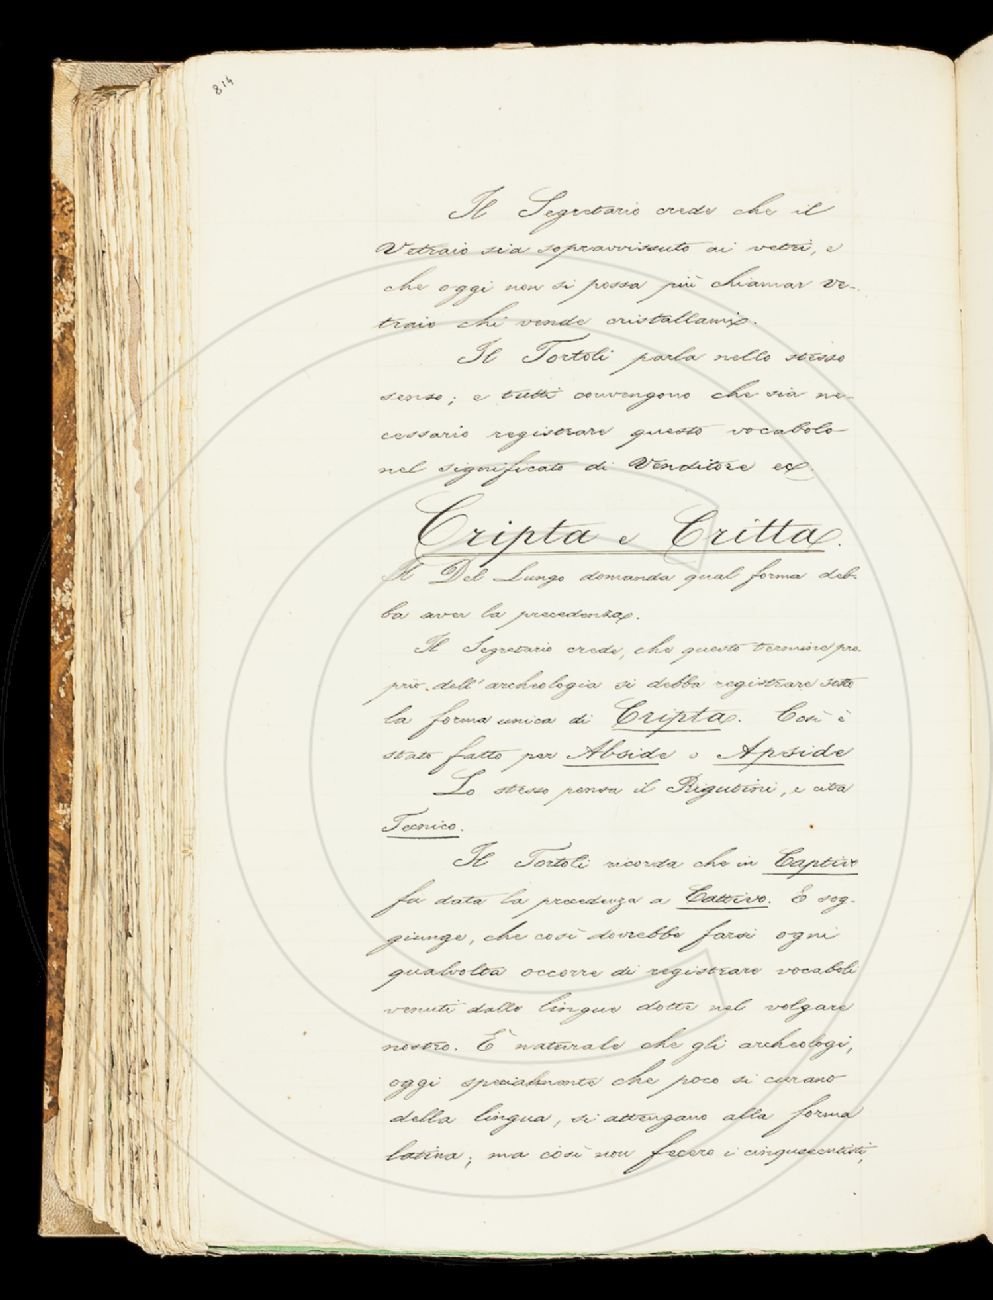 814
Il Segretario crede che il
Vetraio sia sopravvissuto ai vetri, e
che oggi non si possa più chiamar ve-
traio chi vende cristallami.
Il Tortoli parla nello stesso
senso; e tutti convengono che sia ne-
cessario registrare questo vocabolo
nel significato di Venditore ec.
Cripta e Critta.
Il Del Lungo domanda qual forma deb-
ba aver la precedenza.
Il Segretario crede, che questo termine pro-
prio dell'archeologia si debba registrare sotto
la forma unica di Cripta. Così è
stato fatto per Abside o Apside
Lo stesso pensa il Rigutini, e cita
Tecnico.
Il Tortoli ricorda che in Captivo
fu data la precedenza a Cattivo. E sog-
giunge, che così dovrebbe farsi ogni
qualvolta occorre di registrare vocaboli
venuti dalle lingue dotte nel volgare
nostro. È naturale che gli archeologi,
oggi specialmente che poco si curano
della lingua, si attengano alla forma
latina; ma così non fecero i cinquecentisti,